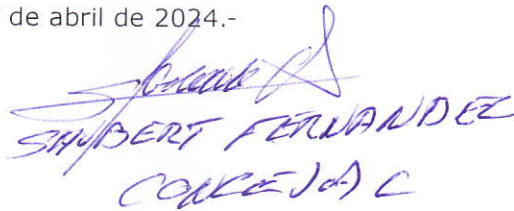 de abril de 2024.-
SHUBERT FERNANDEZ
CONCEJAL